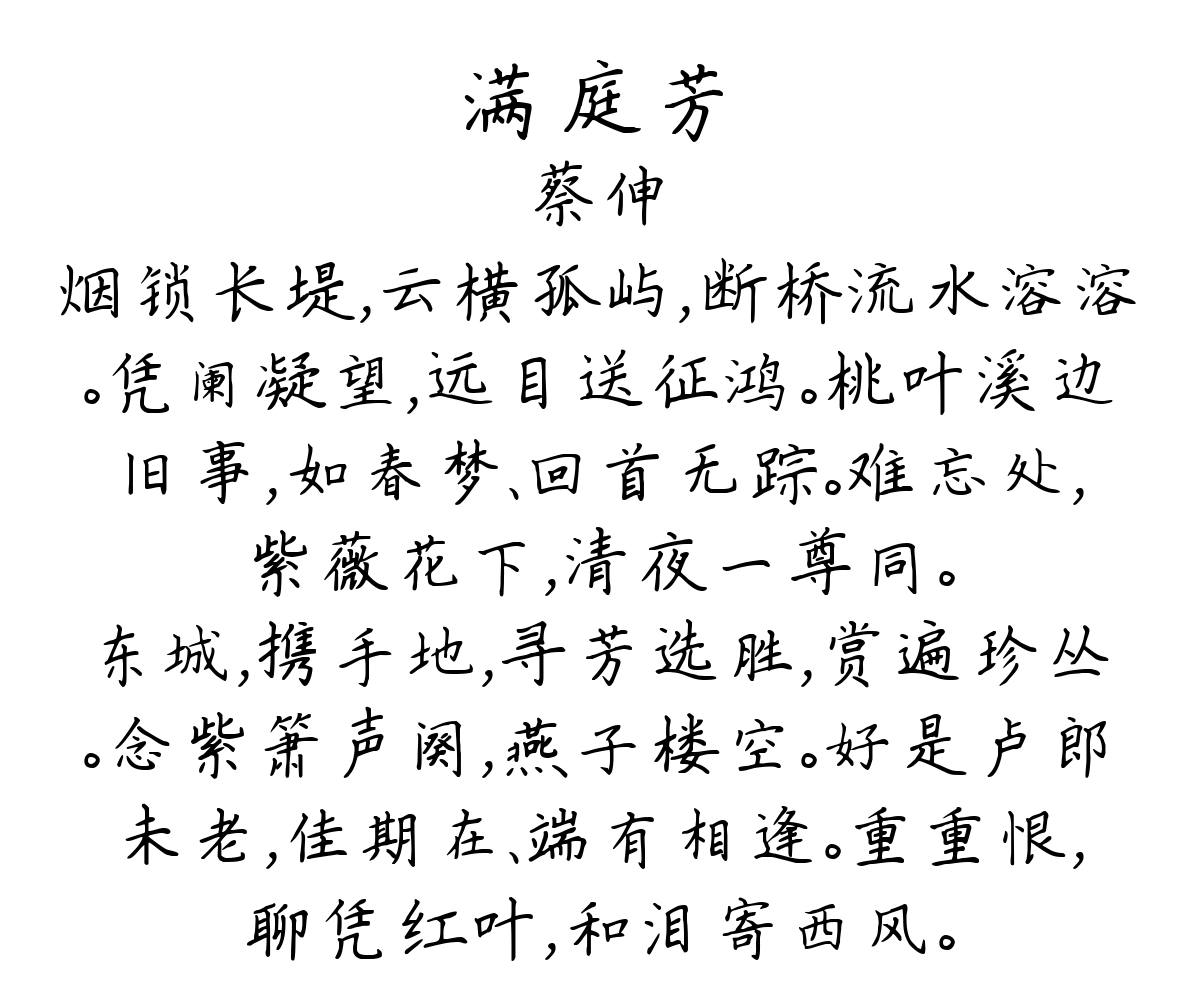 满庭芳
蔡伸
烟锁长堤,云横孤屿,断桥流水溶溶
。凭阑凝望,远目送征鸿。桃叶溪边
旧事,如春梦、回首无踪。难忘处,
紫薇花下,清夜一尊同。
东城,携手地,寻芳选胜,赏遍珍丛
。念紫箫声阕,燕子楼空。好是卢郎
未老,佳期在、端有相逢。重重恨,
聊凭红叶,和泪寄西风。